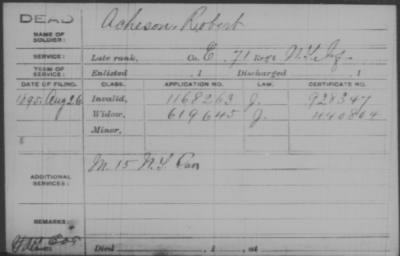 DEAD
NAME OF SOLDIER:
Acheson, Robert
SERVICE:
Late rank, Co. E, 71 Reg't N.Y. Inf.
TERM OF SERVICE:
Enlisted , 1 Discharged , 1
DATE OF FILING. CLASS. APPLICATION NO. LAW. CERTIFICATE NO.
1895 Aug 26 Invalid, 1168263 J. 928347
Widow, 619645 J. 440804
Minor,
ADDITIONAL SERVICES:
M. 15 N.Y.
REMARKS:
Died , 1 , at